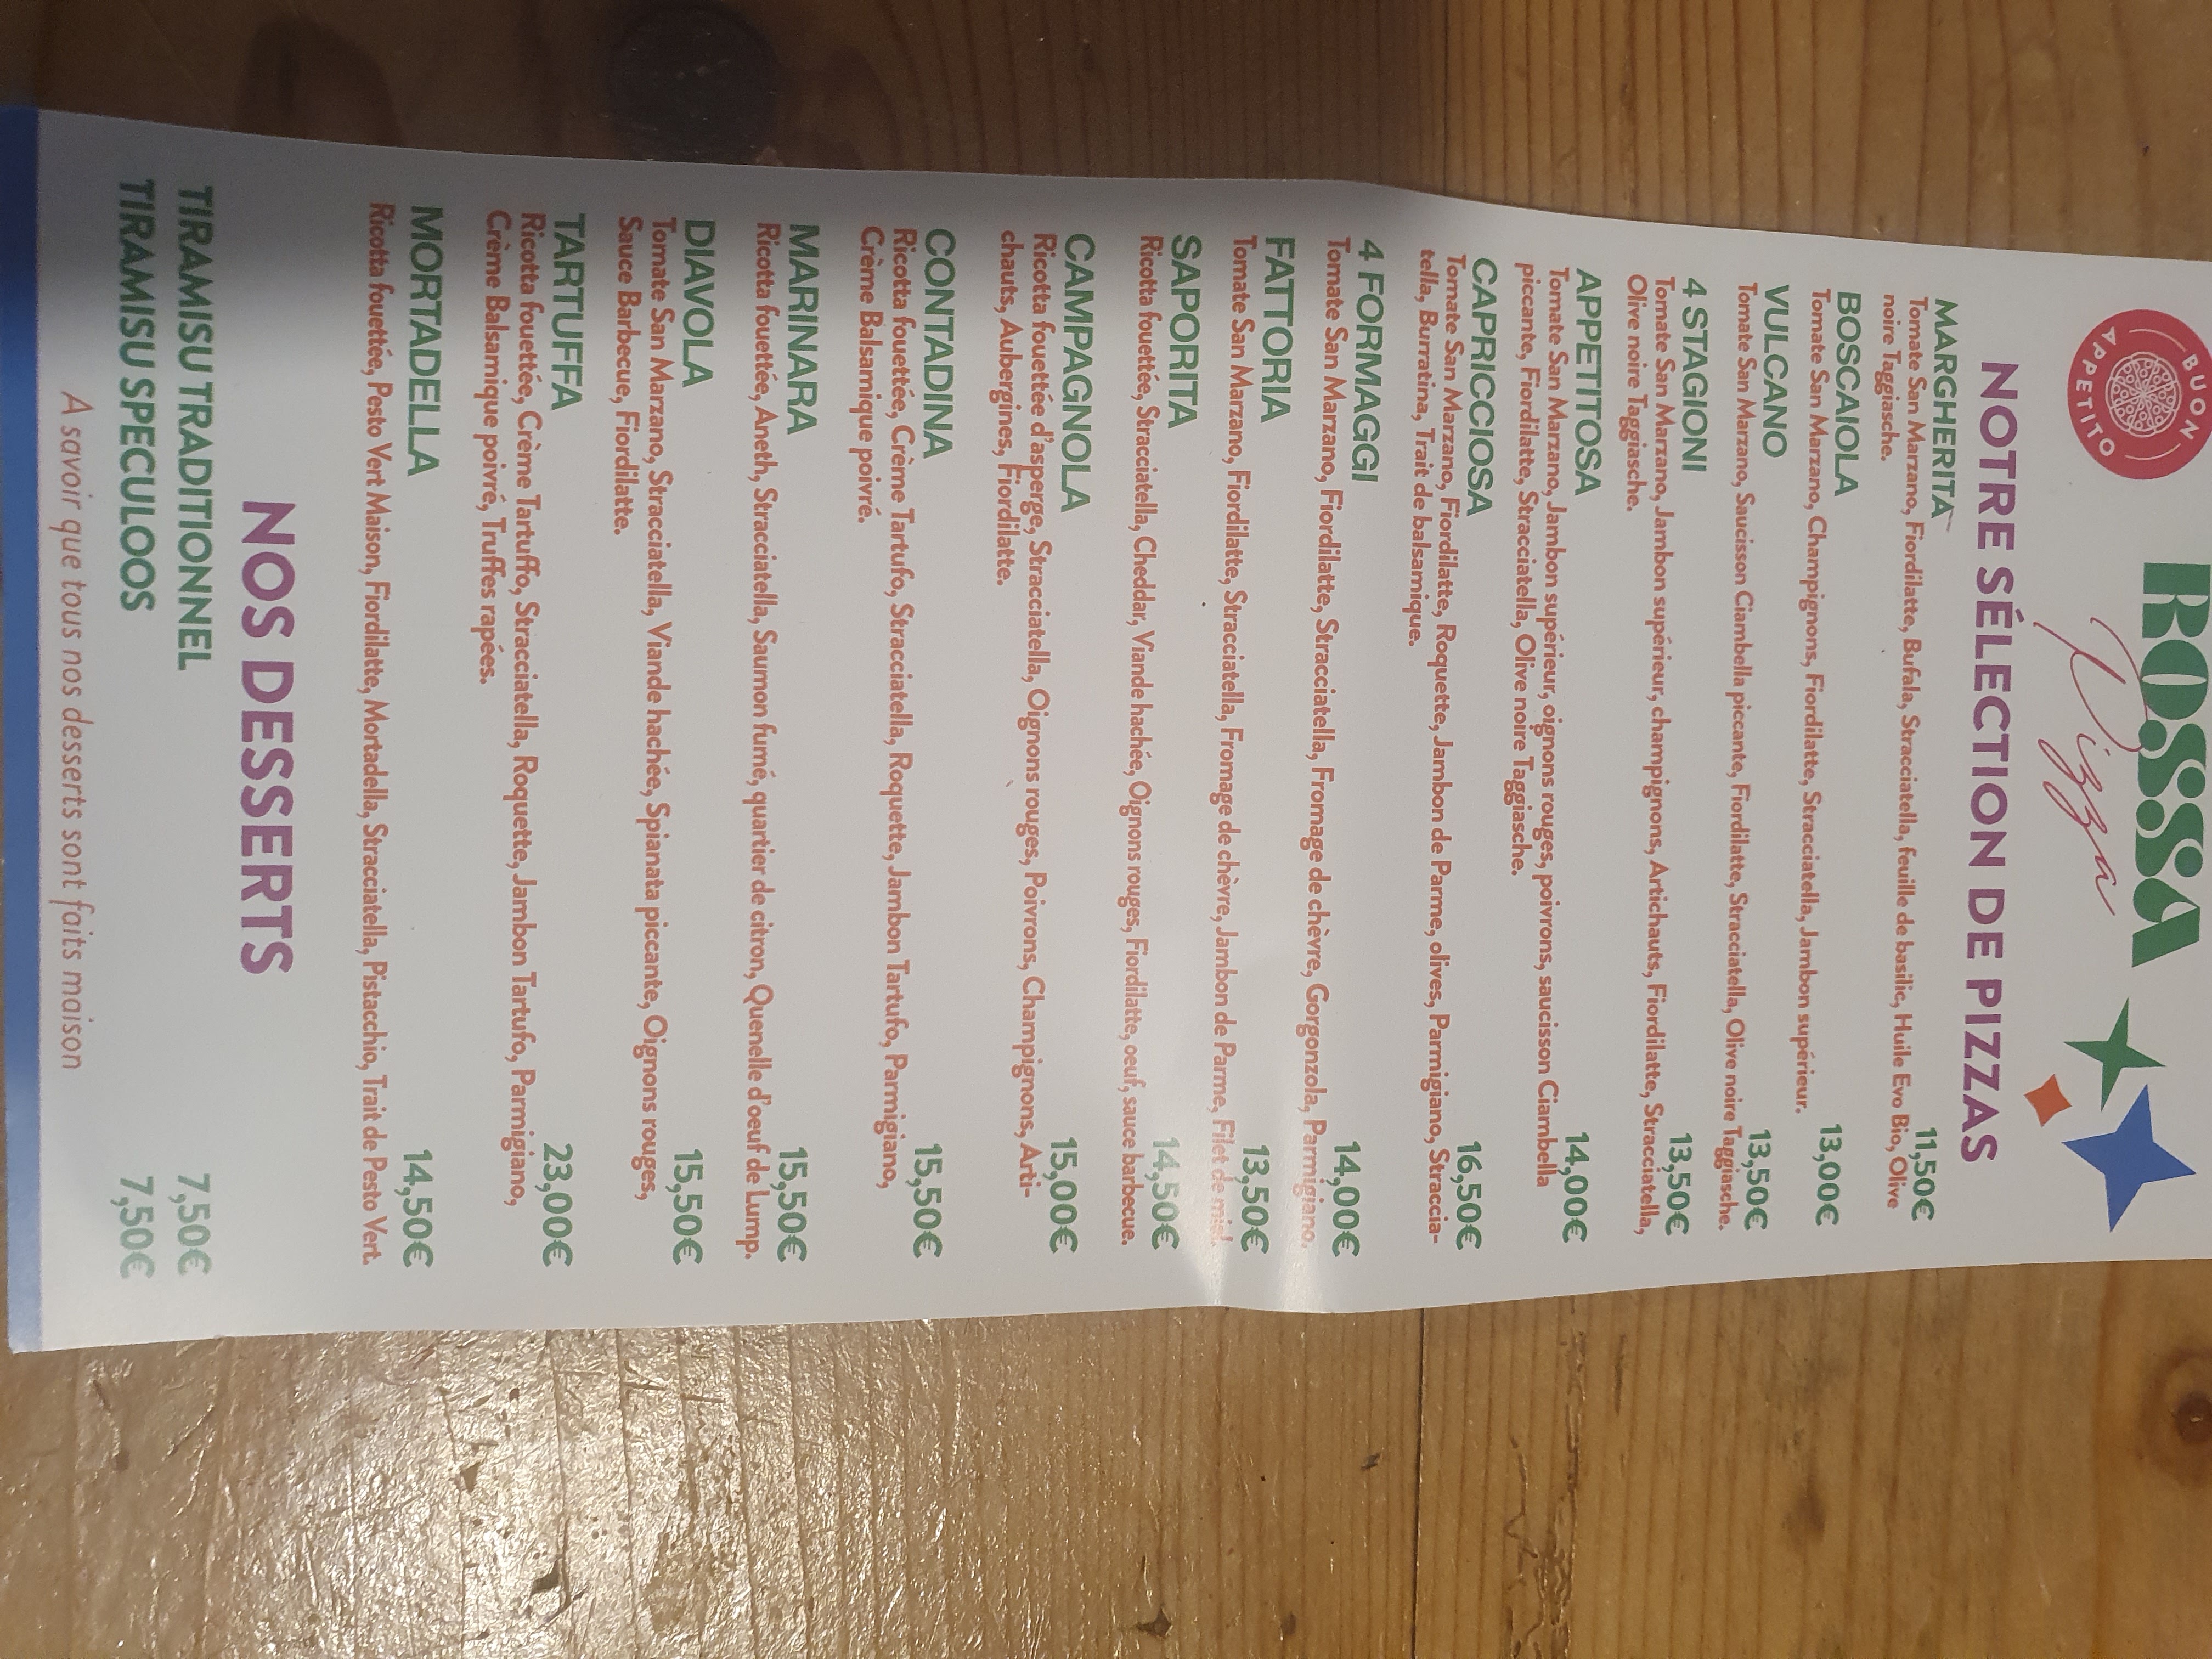 BUON
APPETITO
ROSSA
Pizza
NOTRE SÉLECTION DE PIZZAS
MARGHERITA 11,50€
Tomate San Marzano, Fiordilatte, Bufala, Stracciatella, feuille de basilic, Huile Evo Bio, Olive
noire Taggiasche.
BOSCAIOLA 13,00€
Tomate San Marzano, Champignons, Fiordilatte, Stracciatella, Jambon supérieur.
VULCANO 13,50€
Tomate San Marzano, Saucisson Ciambella piccante, Fiordilatte, Stracciatella, Olive noire Taggiasche.
4 STAGIONI 13,50€
Tomate San Marzano, Jambon supérieur, champignons, Artichauts, Fiordilatte, Stracciatella,
Olive noire Taggiasche.
APPETITOSA 14,00€
Tomate San Marzano, Jambon supérieur, oignons rouges, poivrons, saucisson Ciambella
piccante, Fiordilatte, Stracciatella, Olive noire Taggiasche.
CAPRICCIOSA 16,50€
Tomate San Marzano, Fiordilatte, Roquette, Jambon de Parme, olives, Parmigiano, Straccia-
tella, Burratina, Trait de balsamique.
4 FORMAGGI 14,00€
Tomate San Marzano, Fiordilatte, Stracciatella, Fromage de chèvre, Gorgonzola, Parmigiano.
FATTORIA 13,50€
Tomate San Marzano, Fiordilatte, Stracciatella, Fromage de chèvre, Jambon de Parme, Filet de miel.
SAPORITA 14,50€
Ricotta fouettée, Stracciatella, Cheddar, Viande hachée, Oignons rouges, Fiordilatte, oeuf, sauce barbecue.
CAMPAGNOLA 15,00€
Ricotta fouettée d'asperge, Stracciatella, Oignons rouges, Poivrons, Champignons, Arti-
chauts, Aubergines, Fiordilatte.
CONTADINA 15,50€
Ricotta fouettée, Crème Tartufo, Stracciatella, Roquette, Jambon Tartufo, Parmigiano,
Crème Balsamique poivré.
MARINARA 15,50€
Ricotta fouettée, Aneth, Stracciatella, Saumon fumé, quartier de citron, Quenelle d'oeuf de Lump.
DIAVOLA 15,50€
Tomate San Marzano, Stracciatella, Viande hachée, Spianata piccante, Oignons rouges,
Sauce Barbecue, Fiordilatte.
TARTUFFA 23,00€
Ricotta fouettée, Crème Tartuffo, Stracciatella, Roquette, Jambon Tartufo, Parmigiano,
Crème Balsamique poivré, Truffes rapées.
MORTADELLA 14,50€
Ricotta fouettée, Pesto Vert Maison, Fiordilatte, Mortadella, Stracciatella, Pistacchio, Trait de Pesto Vert.
NOS DESSERTS
TIRAMISU TRADITIONNEL 7,50€
TIRAMISU SPECULOOS 7,50€
A savoir que tous nos desserts sont faits maison